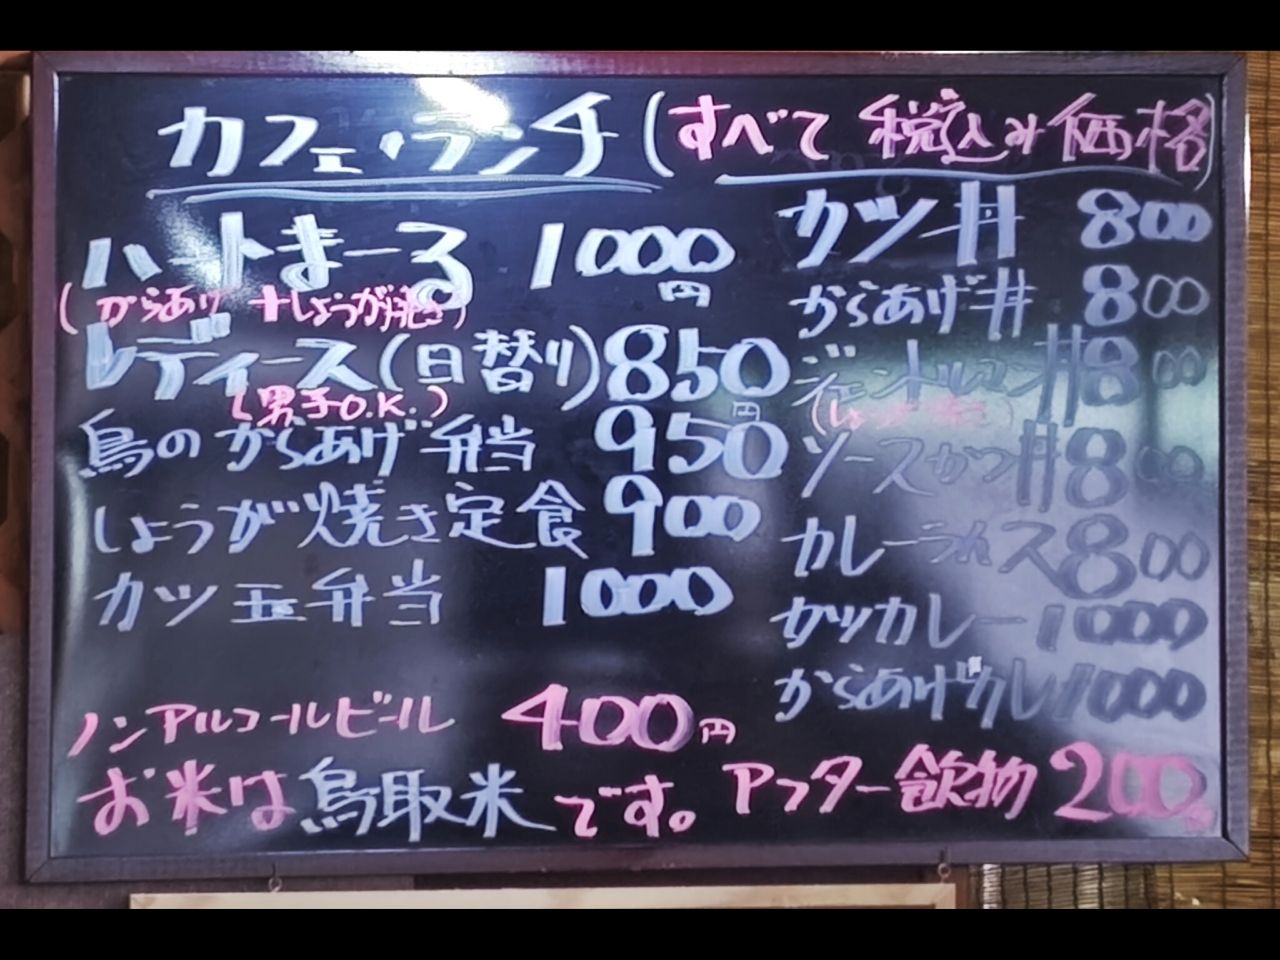 カフェ・ランチ(すべて 税込み価格)
ハートまーる 1000円
(からあげ +しょうが焼き)
レディース(日替り)850円
(男子O.K.)
鳥のからあげ弁当 950
しょうが焼き定食 900
カツ玉弁当 1000
カツ丼 800
からあげ丼 800
ジェントルマン丼 800
ソースかつ丼 800
カレーライス 800
カツカレー 1000
からあげカレー 1000
ノンアルコールビール 400円
お米は鳥取米です。
アフター飲物 200円